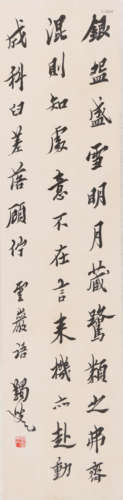 銀盌盛雪明月藏鷺類之弗齊
混則知處意不在言来機亦赴動
成科臼差落顧佇 雲巖語